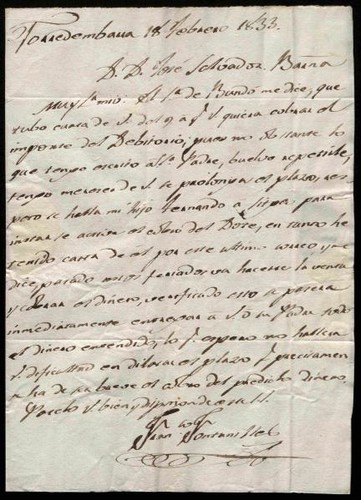 Torredembarra 18 Febrero 1833.
D. D. José Salvador Barna
Muy Sr. mio. El Sr. de me dice, que
tubo carta de V. del 9 a qe. V. quiera cobrar el
importe del Debitorio, pues no obstante lo
que tengo escrito al Sr. Padre, buelvo a repetirle,
tengo merecer de V. se prolongue el plazo,
pero se halla mi hijo Fernando a para
instar se active el cobro del en tanto he
tenido carta de el por este ultimo correo y me
dice, pasado va hacerse la venta
y cobrar el dinero, verificado esto se pasara
inmediatamente entregar a V. o su Padre todo
el dinero entendido, lo qe. espero no hallara
V. dificultad en dilatar el plazo qe. precisamen
ha de ser breve el cobro del predicho dinero.
Paselo V. bien y disponga de su S. S.
Juan Fontanilles